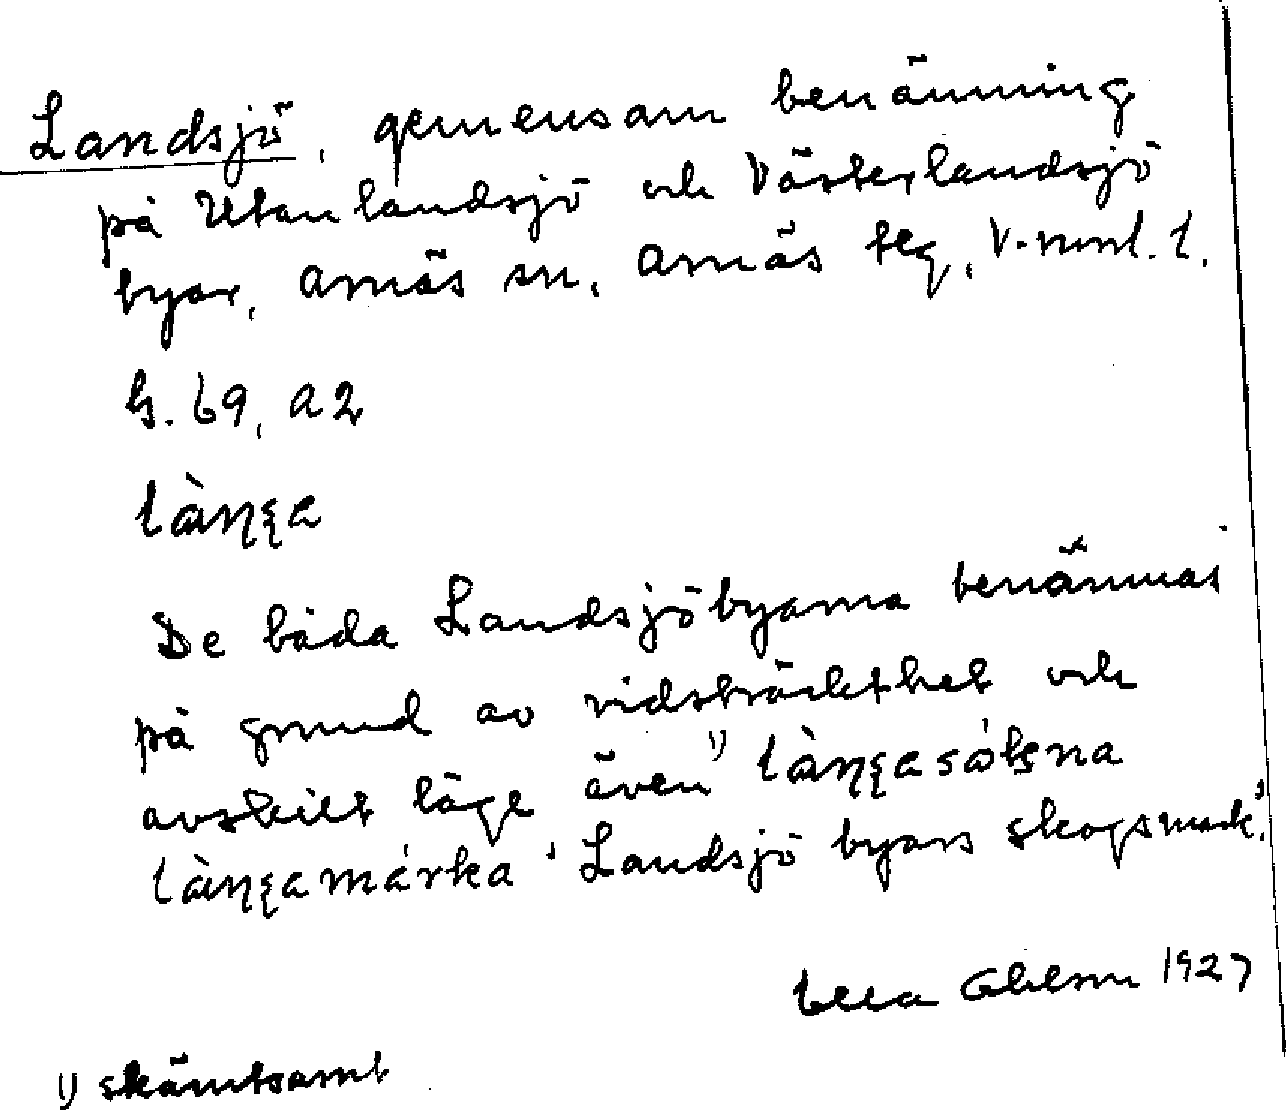 Landsjö, gemensam benämning
på Utanlandsjö och Västerlandsjö
byar, Arnäs sn, Arnäs tlg, V-nml. l.
G. 69, a2
làŋʂa
De båda Landsjöbyarna benämnas
på grund av vidsträckthet och
avskilt läge även 1) làŋʂasóksna
làŋʂamárka 'Landsjö byars skogsmark.'
1927
1) skämtsamt